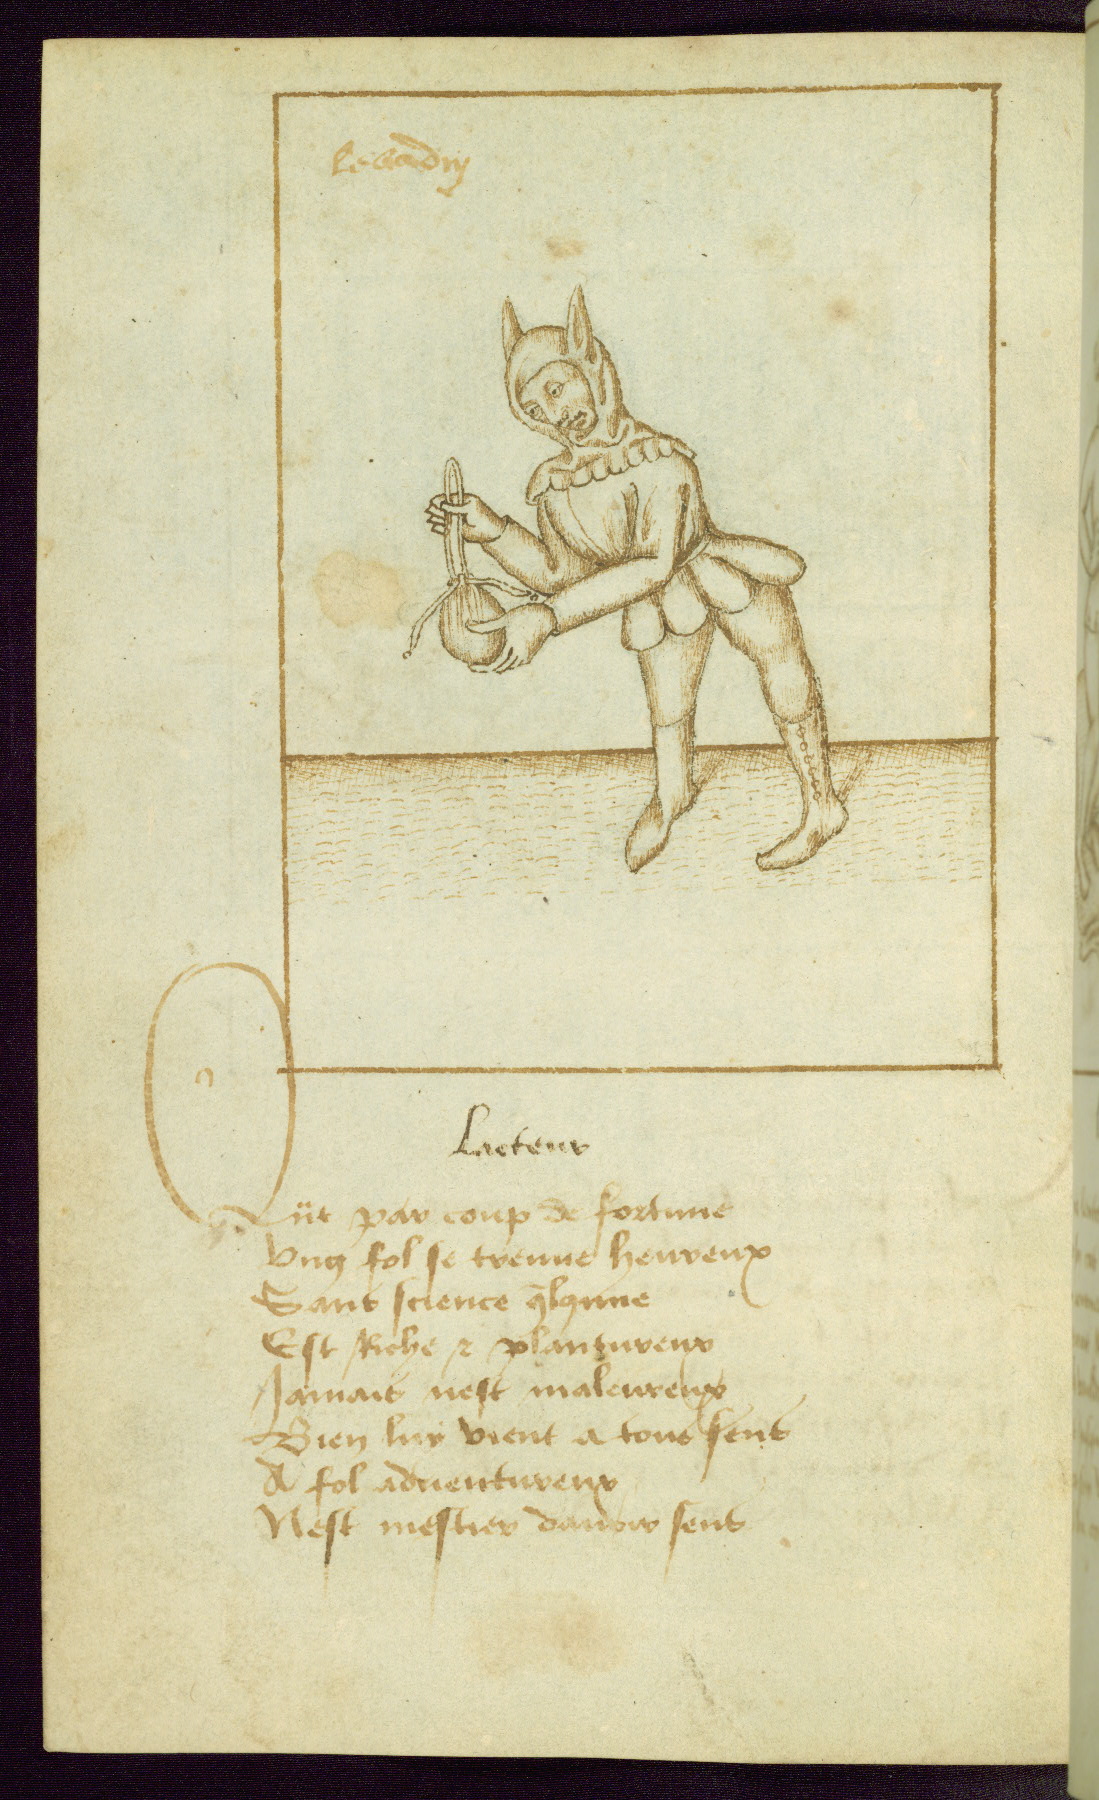 Lacteur
Qüt par coup de fortune
Ung fol se treuue heureux
Sans science q̃lqune
Est Riche & plantureux
Jamais nest maleureux
Bien luy vient a tous sens
A fol aduentureux
Nest mestier dauoir sens